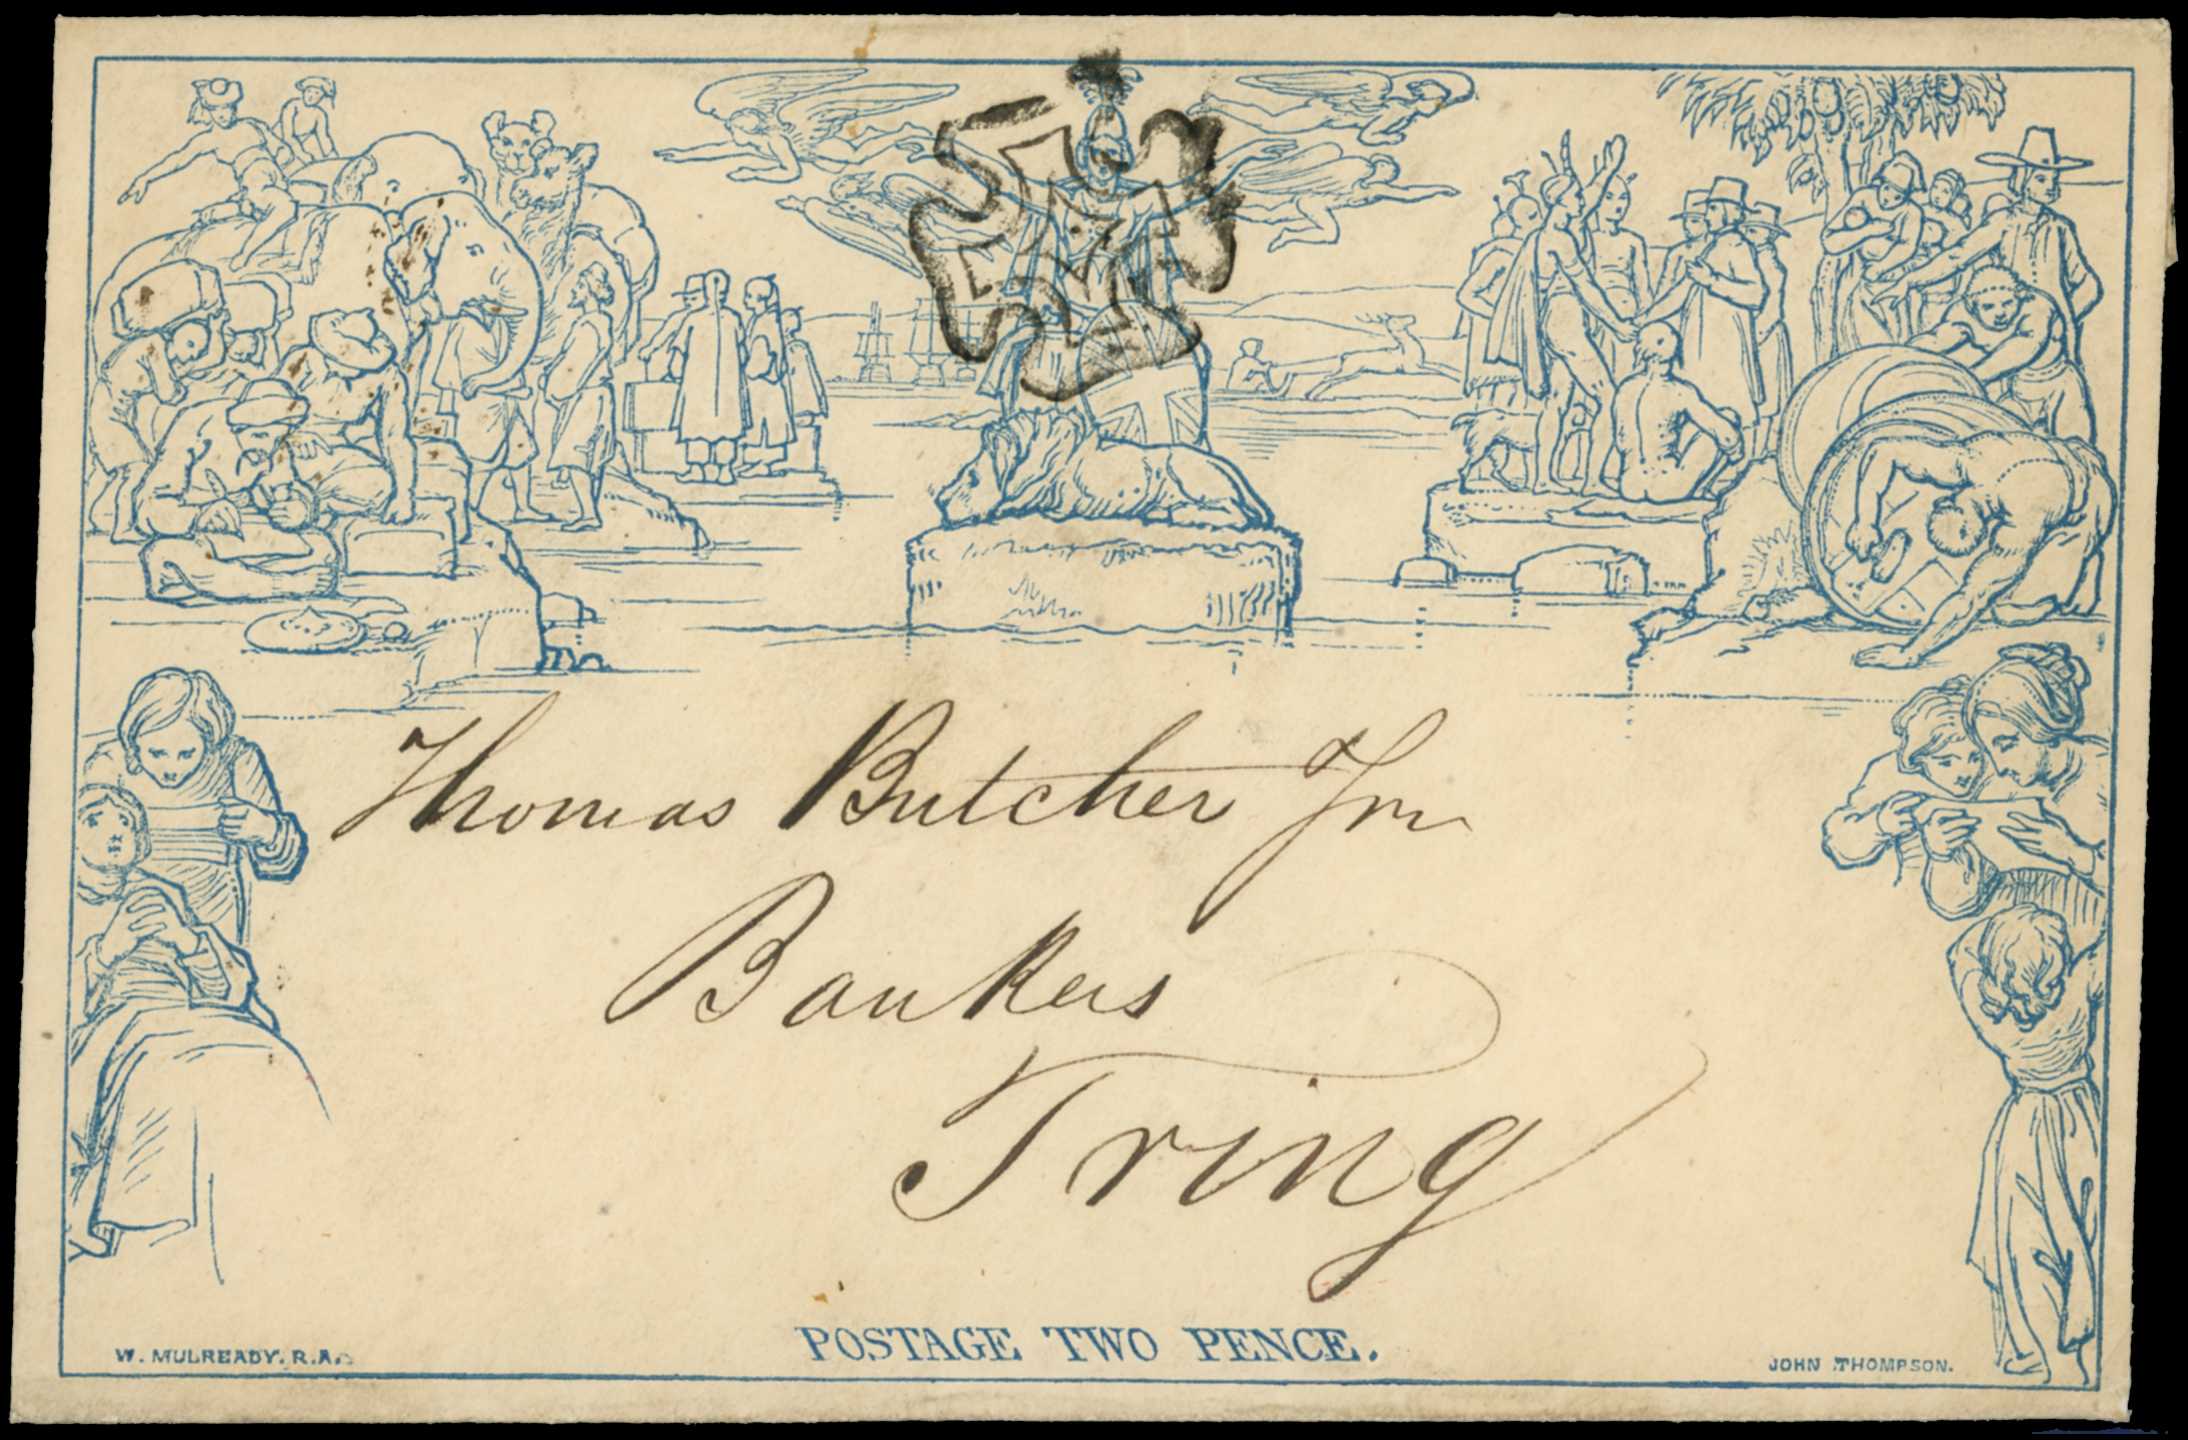 Thomas Butcher Jnr
Bankers
Tring
POSTAGE TWO PENCE.
W. MULREADY. R.A.
JOHN THOMPSON.